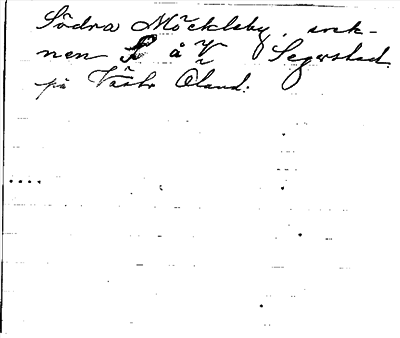 Södra Möckleby, sock-
nen S å V Segerstad
på Västr Öland.